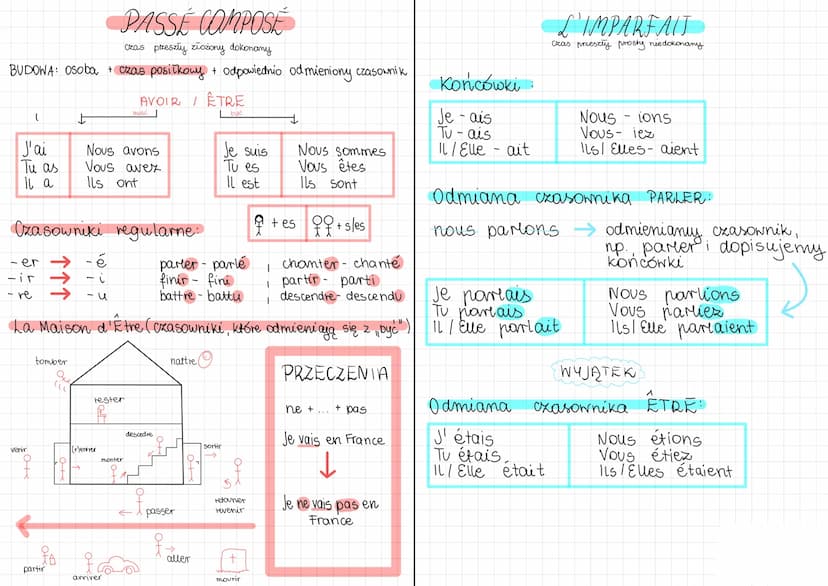 PASSÉ COMPOSÉ
czas przeszły złożony dokonany
BUDOWA: osoba + czas posiłkowy + odpowiednio odmieniony czasownik
AVOIR / ÊTRE
mieć
być
J'ai
Tu as
Il a
Nous avons
Vous avez
Ils ont
Je suis
Tu es
Il est
Nous sommes
Vous êtes
Ils sont
Czasowniki regularne:
+ es
+ s/es
-er → -é
-ir → -i
-re → -u
parler - parlé
finir - fini
battre - battu
chanter - chanté
partir - parti
descendre - descendu
La Maison d'Être (czasowniki, które odmieniają się z „być")
tomber
naître
rester
descendre
venir
(r)entrer
monter
sortir
passer
retourner
revenir
partir
arriver
aller
mourir
PRZECZENIA
ne + ... + pas
Je vais en France
Je ne vais pas en
France
L'IMPARFAIT
czas przeszły prosty niedokonany
Końcówki:
Je - ais
Tu - ais
Il / Elle - ait
Nous - ions
Vous - iez
Ils / Elles - aient
Odmiana czasownika PARLER:
nous parlons → odmieniamy czasownik,
np. parler i dopisujemy
końcówki
Je parlais
Tu parlais
Il / Elle parlait
Nous parlions
Vous parliez
Ils / Elle parlaient
WYJĄTEK
Odmiana czasownika ÊTRE:
J'étais
Tu étais
Il / Elle était
Nous étions
Vous étiez
Ils / Elles étaient